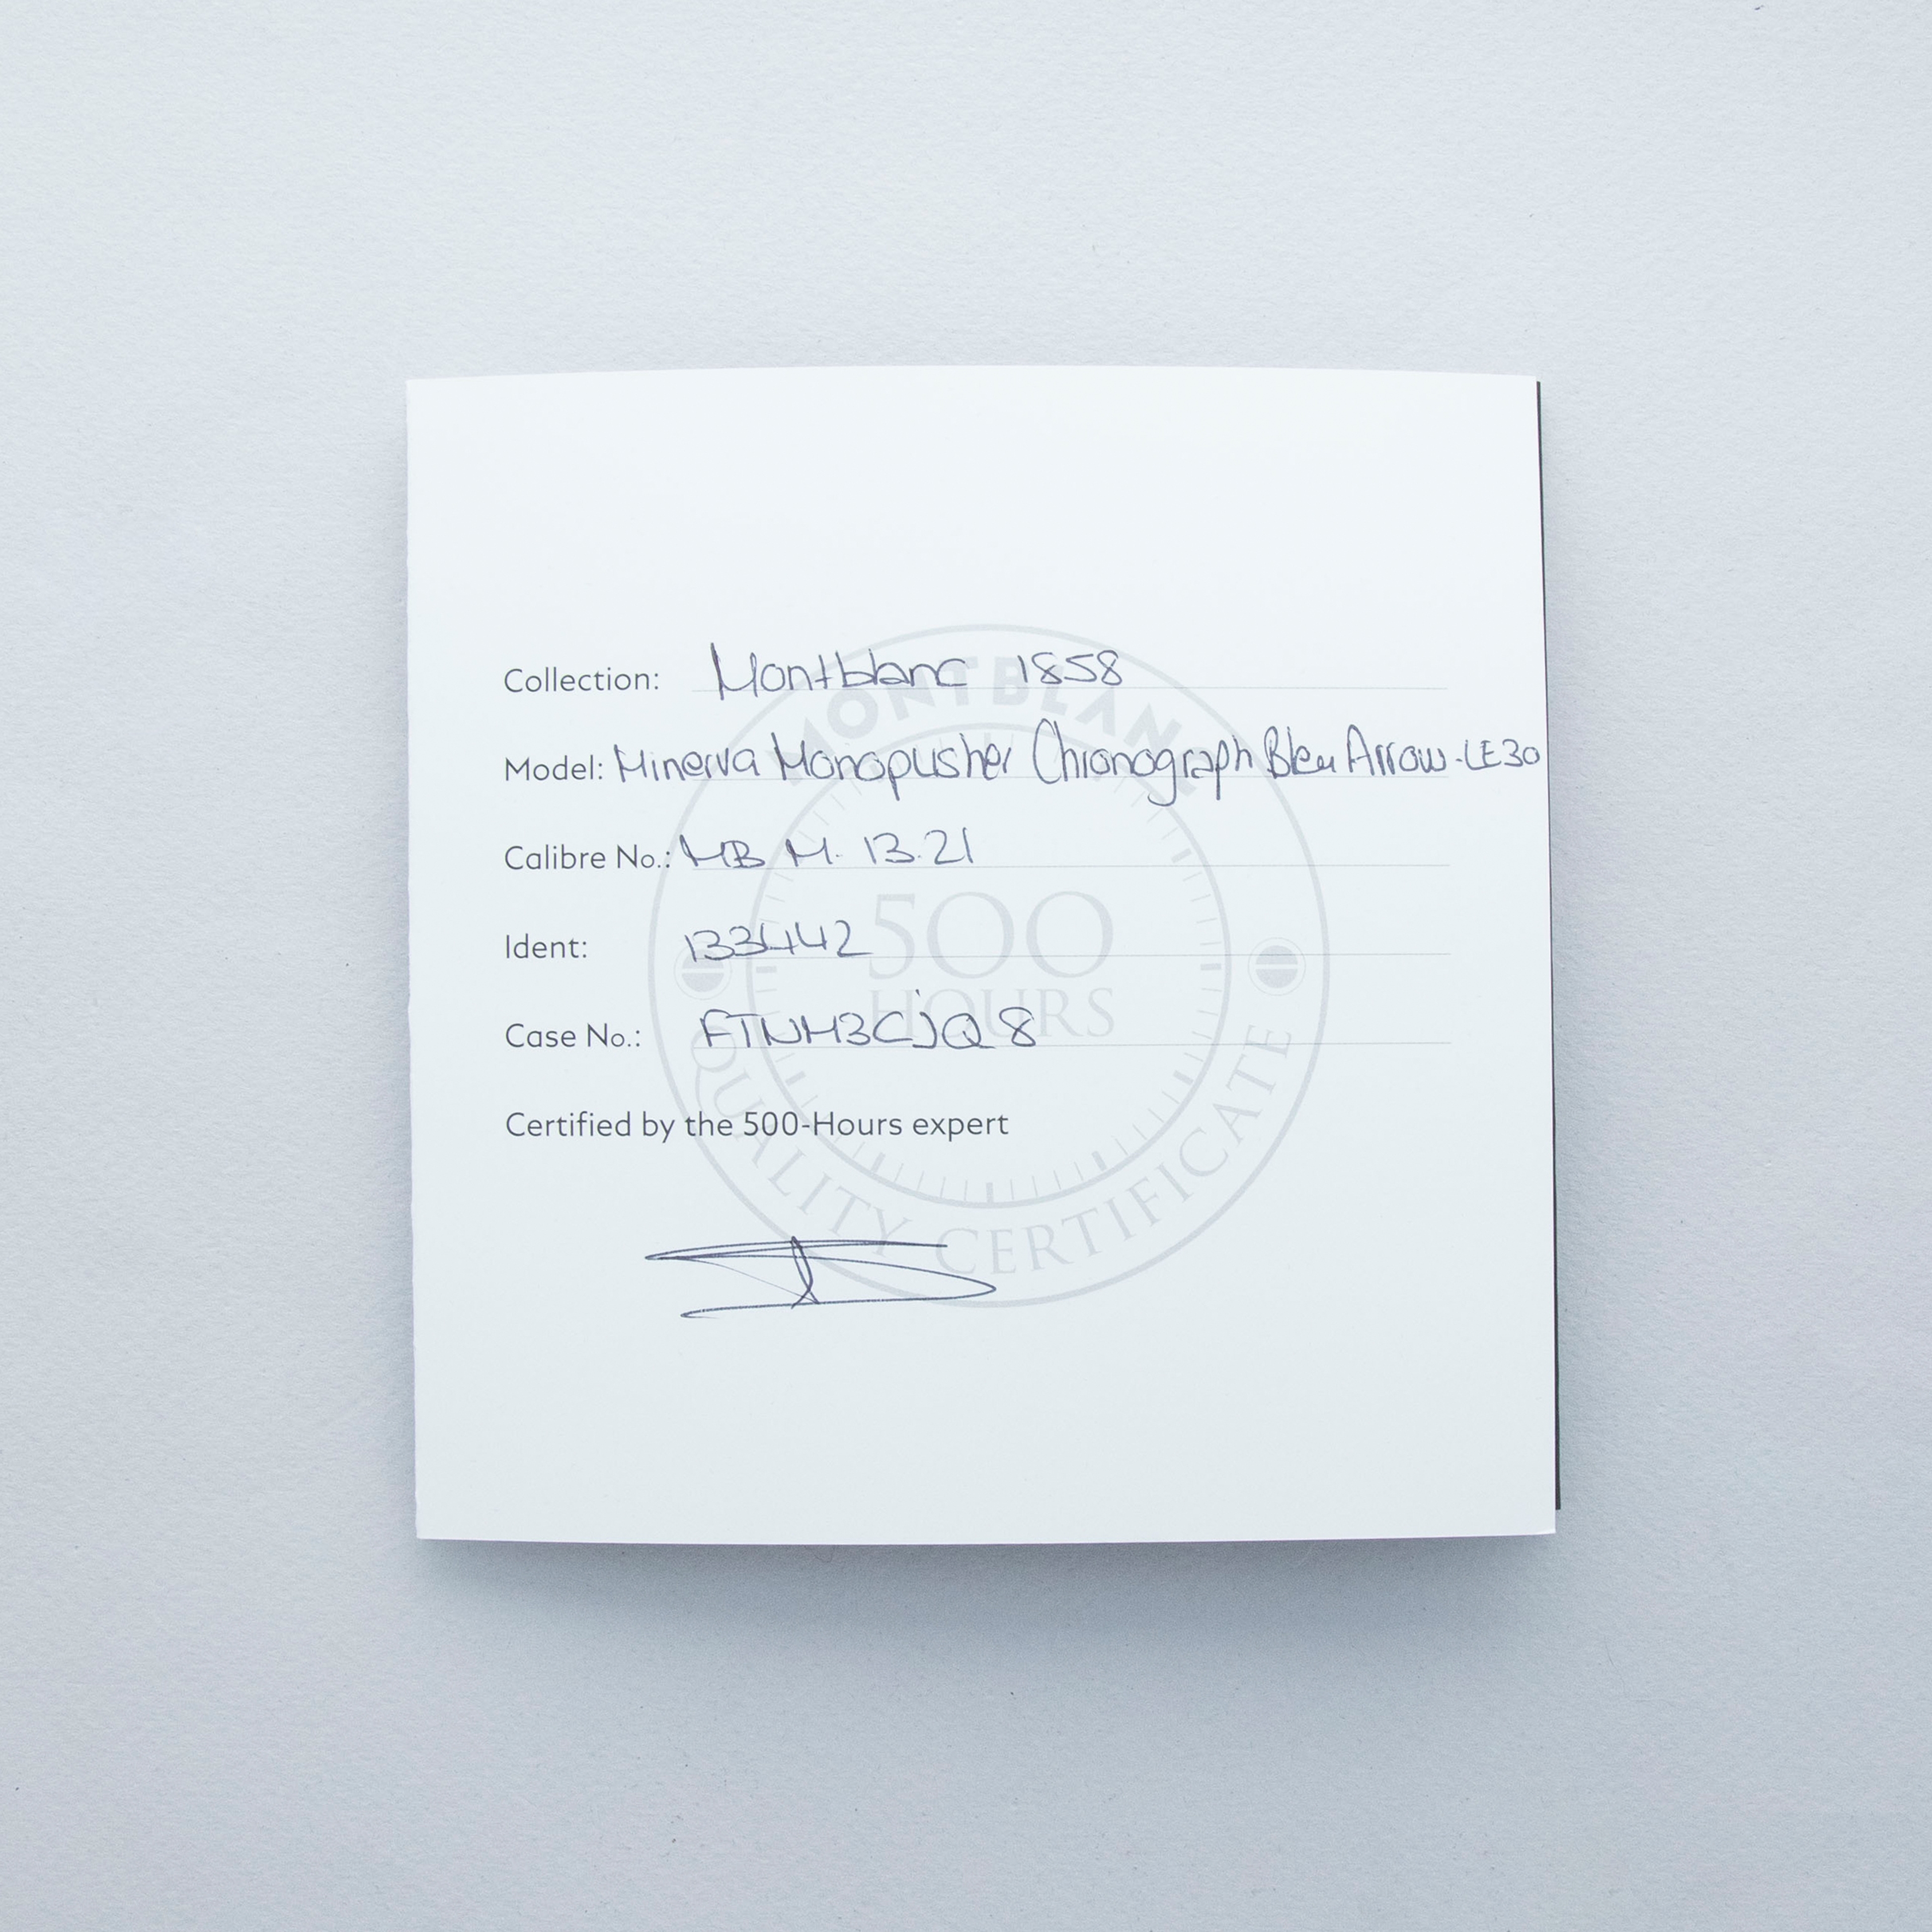 Collection: Montblanc 1858
Model: Minerva Monopusher Chronograph Bleu Arrow-LE30
Calibre No.: MB M. 13.21
Ident: 133442
Case No.: FTNM3CJQ8
Certified by the 500-Hours expert
MONTBLANC
500
HOURS
QUALITY CERTIFICATE